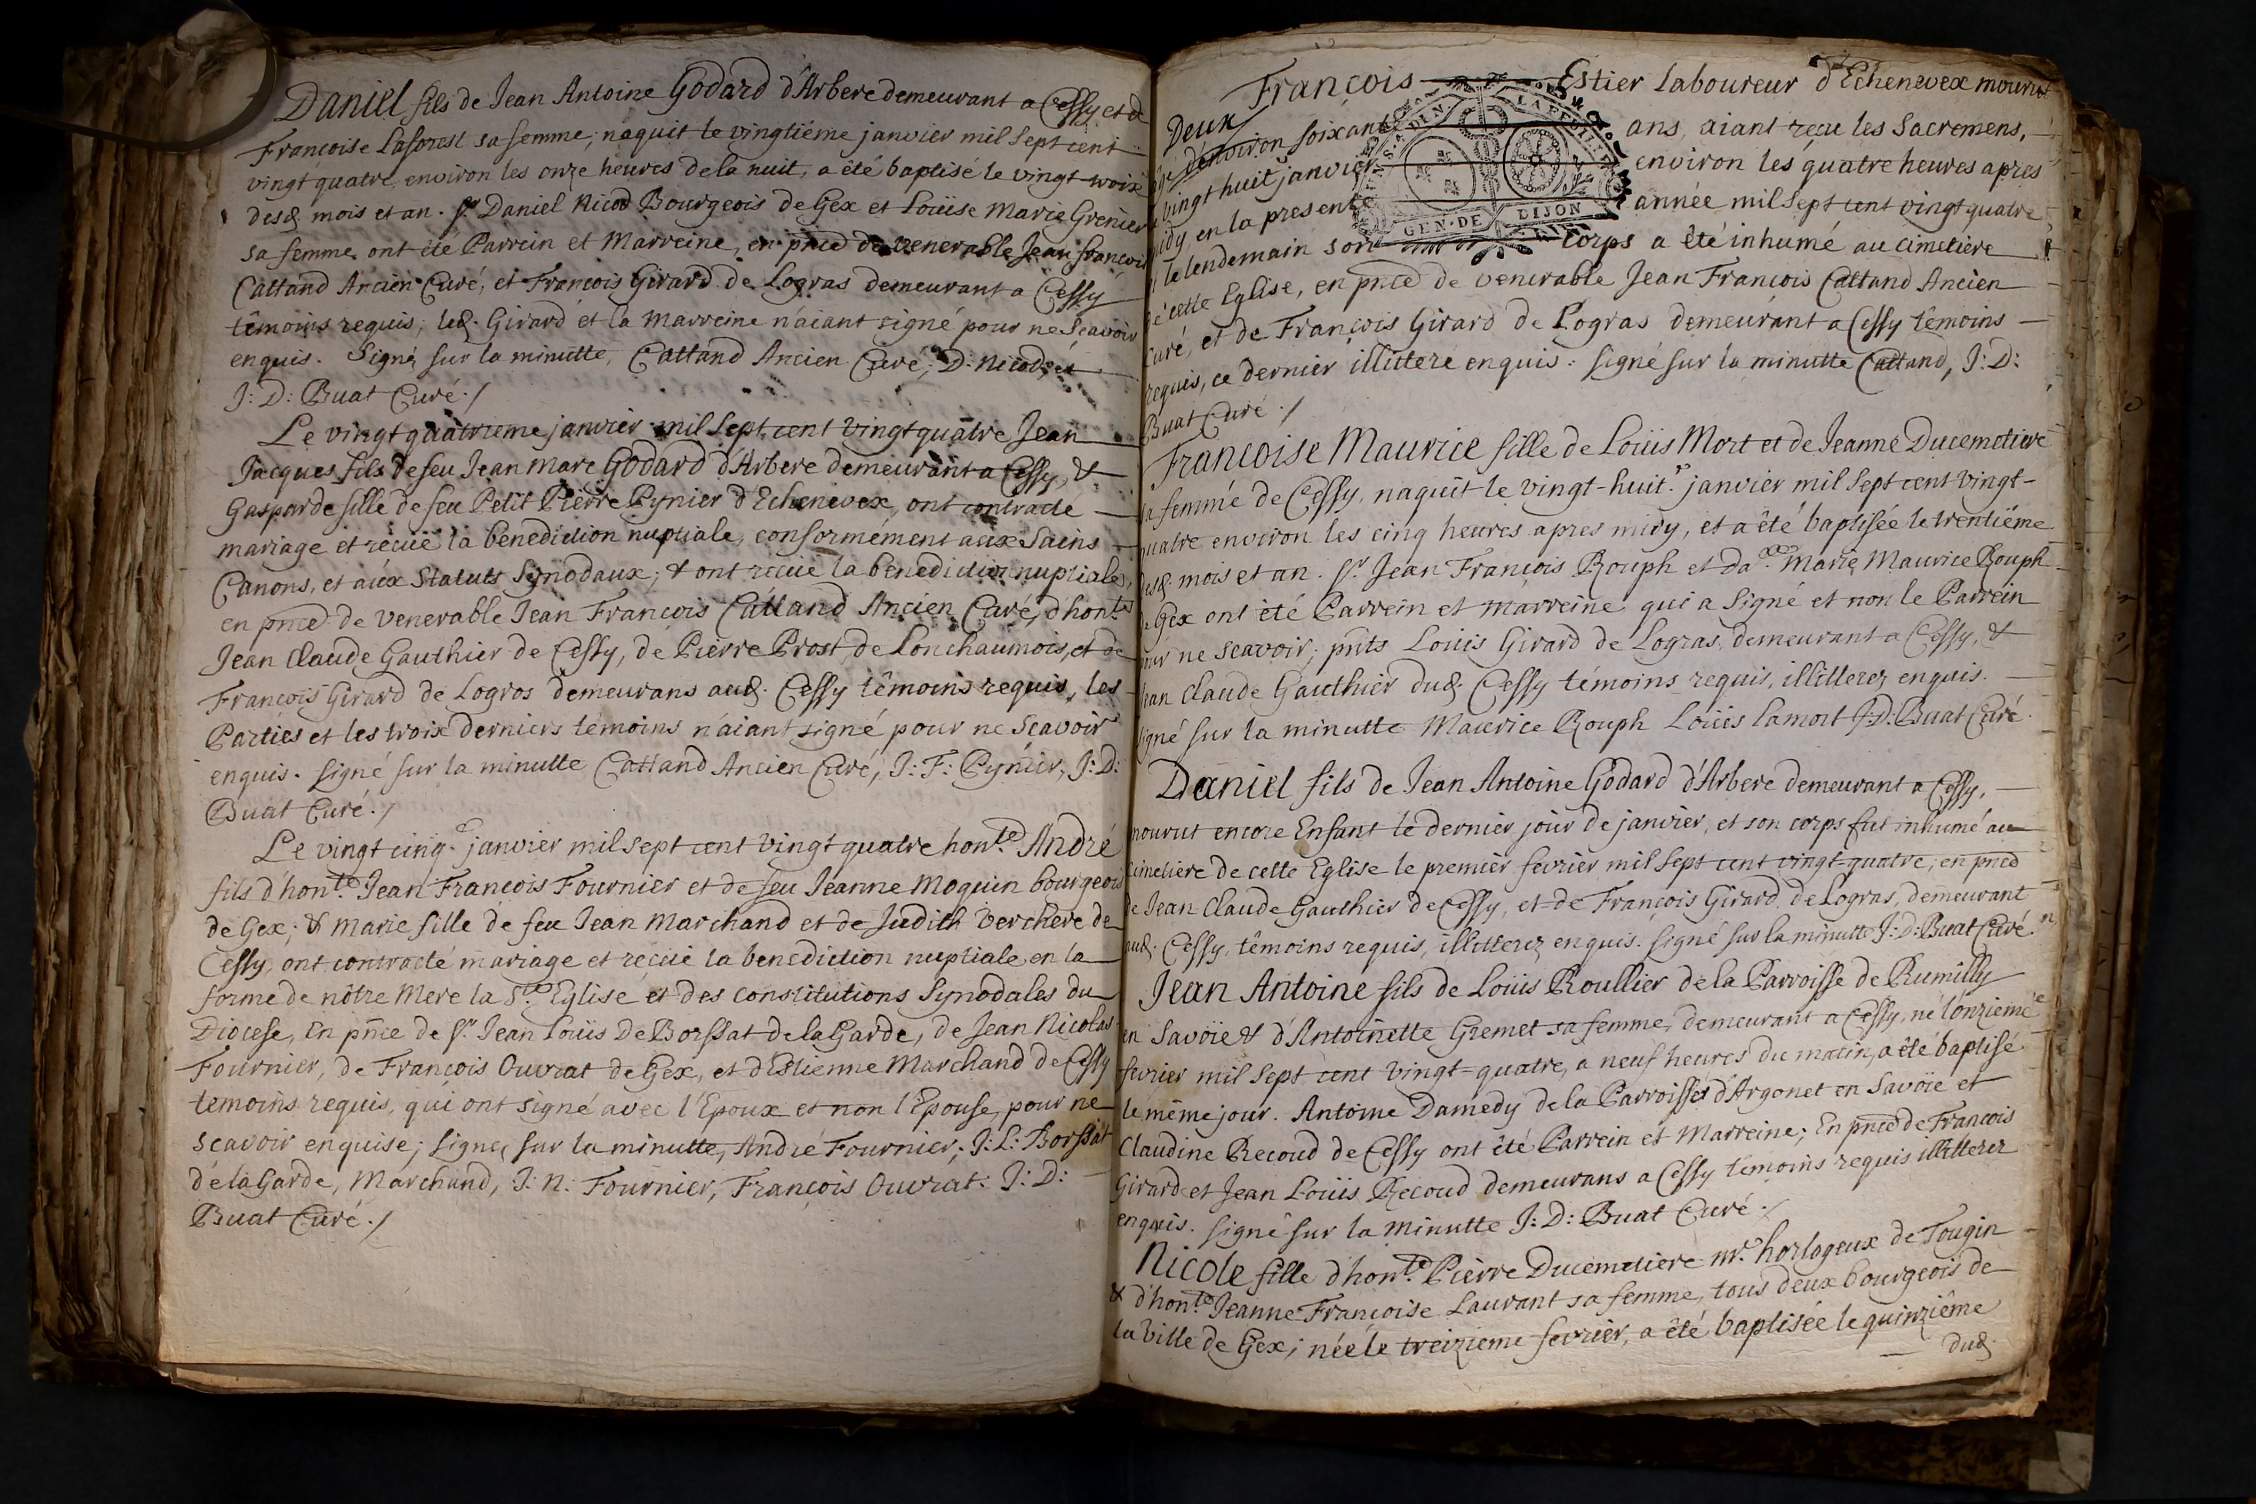 Daniel fils de Jean Antoine Godard d'Arbere demeurant a Cessy, et de
Francoise Laforest sa femme, naquit le vingtiéme janvier mil sept cent
vingt quatre, environ les onze heures de la nuit, a été baptisé le vingt troix
desd. mois et an. Sr. Daniel Nicod Bourgeois de Gex et Loüise Marie Grenier
sa femme ont été Parrein et Marreine, en pnce de venerable Jean François
Cattand Ancien Curé, et François Girard de Logras demeurant a Cessy
têmoins requis, led. Girard et la Marreine n'aiant signé pour ne Scavoir
enquis. Signé sur la minutte, Cattand Ancien Curé, D. Nicod, et
J: D: Buat Curé ./
Le vingt quatrieme janvier mil sept cent vingt quatre Jean
Jacques fils de feu Jean Marc Godard d'Arbere demeurant a Cessy, &
Gasparde fille de feu Petit Pierre Pynier d'Echenevex, ont contracté
mariage et recüe la benediction nuptiale, conformément aux Sains
Canons, et aux Statuts Synodaux; & ont recüe la benediction nuptiale,
en pnce de venerable Jean François Cattand Ancien Curé, d'honts
Jean Claude Gauthier de Cessy, de Pierre Prost de Lonchaumois, et de
François Girard de Logros demeurans aud. Cessy têmoins requis, les
Parties et les troix derniers têmoins n'aiant signé pour ne Scavoir
enquis. Signé sur la minutte Cattand Ancien Curé, J: F: Pynier, J: D:
Buat Curé ./
Le vingt cinq.e janvier mil sept cent vingt quatre hon.te André
fils d'hon.te Jean François Fournier et de feu Jeanne Moquin bourgeois
de Gex; & Marie fille de feu Jean Marchand et de Judith Verchere de
Cessy, ont contracté mariage et recüe la benediction nuptiale en la
forme de nôtre Mere la Ste. Eglise et des constitutions Synodales du
Diocese, En pnce de Sr. Jean Loüis De Borssat de la Garde, de Jean Nicolas
Fournier, de François Ouvrat de Gex, et d'Estienne Marchand de Cessy
temoins requis, qui ont signé avec l'Epoux et non l'Epouse, pour ne
scavoir enquise; signé, sur la minutte, André Fournier; J: L: Borssat
de la Garde, Marchand, J: N: Fournier, François Ouvrat: J: D:
Buat Curé ./
François Estier Laboureur d'Echenevex mourut
Deux
d'environ soixante ans, aiant recu les Sacremens,
vingt huit janvier environ les quatre heures apres
midy en la presente année mil sept cent vingt quatre
le lendemain son corps a été inhumé au cimetiere
de cette Eglise, en pnce de venerable Jean François Cattand Ancien
Curé, et de François Girard de Logras demeurant a Cessy têmoins
requis, ce dernier illittere enquis: signé sur la minutte Cattand, J: D:
Buat Curé ./
Francoise Maurice fille de Loüis Mort et de Jeanne Ducemetiere
sa femme de Cessy, naquit le vingt-huit.e janvier mil sept cent vingt-
quatre environ les cinq heures apres midy, et a été baptisée le trentiéme
desd. mois et an. Sr. Jean François Rouph et da.lle Marie Maurice Rouph
de Gex ont été Parrein et Marreine qui a signé et non le Parrein
pour ne scavoir; pnts Loüis Girard de Logras, demeurant a Cessy, &
Jean Claude Gauthier dud. Cessy témoins requis, illitterez enquis.
signé sur la minutte Maurice Rouph Loüis Lamort J: D: Buat Curé.
Daniel fils de Jean Antoine Godard d'Arbere demeurant a Cessy,
mourut encore Enfant le dernier jour de janvier, et son corps fut inhumé au
cimetiere de cette Eglise le premier fevrier mil sept cent vingt-quatre, en pnce
de Jean Claude Gauthier de Cessy, et de François Girard de Logras, demeurant
aud. Cessy, têmoins requis, illitterez enquis. signé sur la minutte J: D: Buat Curé.
Jean Antoine fils de Loüis Roullier de la Parroisse de Rumilly
en Savoïe & d'Antoinette Gremet sa femme, demeurant a Cessy, né l'onzieme
fevrier mil sept cent vingt-quatre, a neuf heures du matin, a été baptisé
le même jour. Antoine Damedy de la Parroisse d'Argonet en Savoïe et
Claudine Recoud de Cessy ont êté Parrein et Marreine; En pnce de François
Girard et Jean Loüis Recoud demeurans a Cessy têmoins requis illitterez
enquis. signé sur la minutte J: D: Buat Curé ./
Nicole fille d'hon.te Pierre Ducemetiere mr. horlogeux de Tougin
& d'hon.te Jeanne Françoise Laurant sa femme, tous deux bourgeois de
la ville de Gex; née le treizieme fevrier, a été baptisée le quinziême
dud.
GEN · DE DIJON